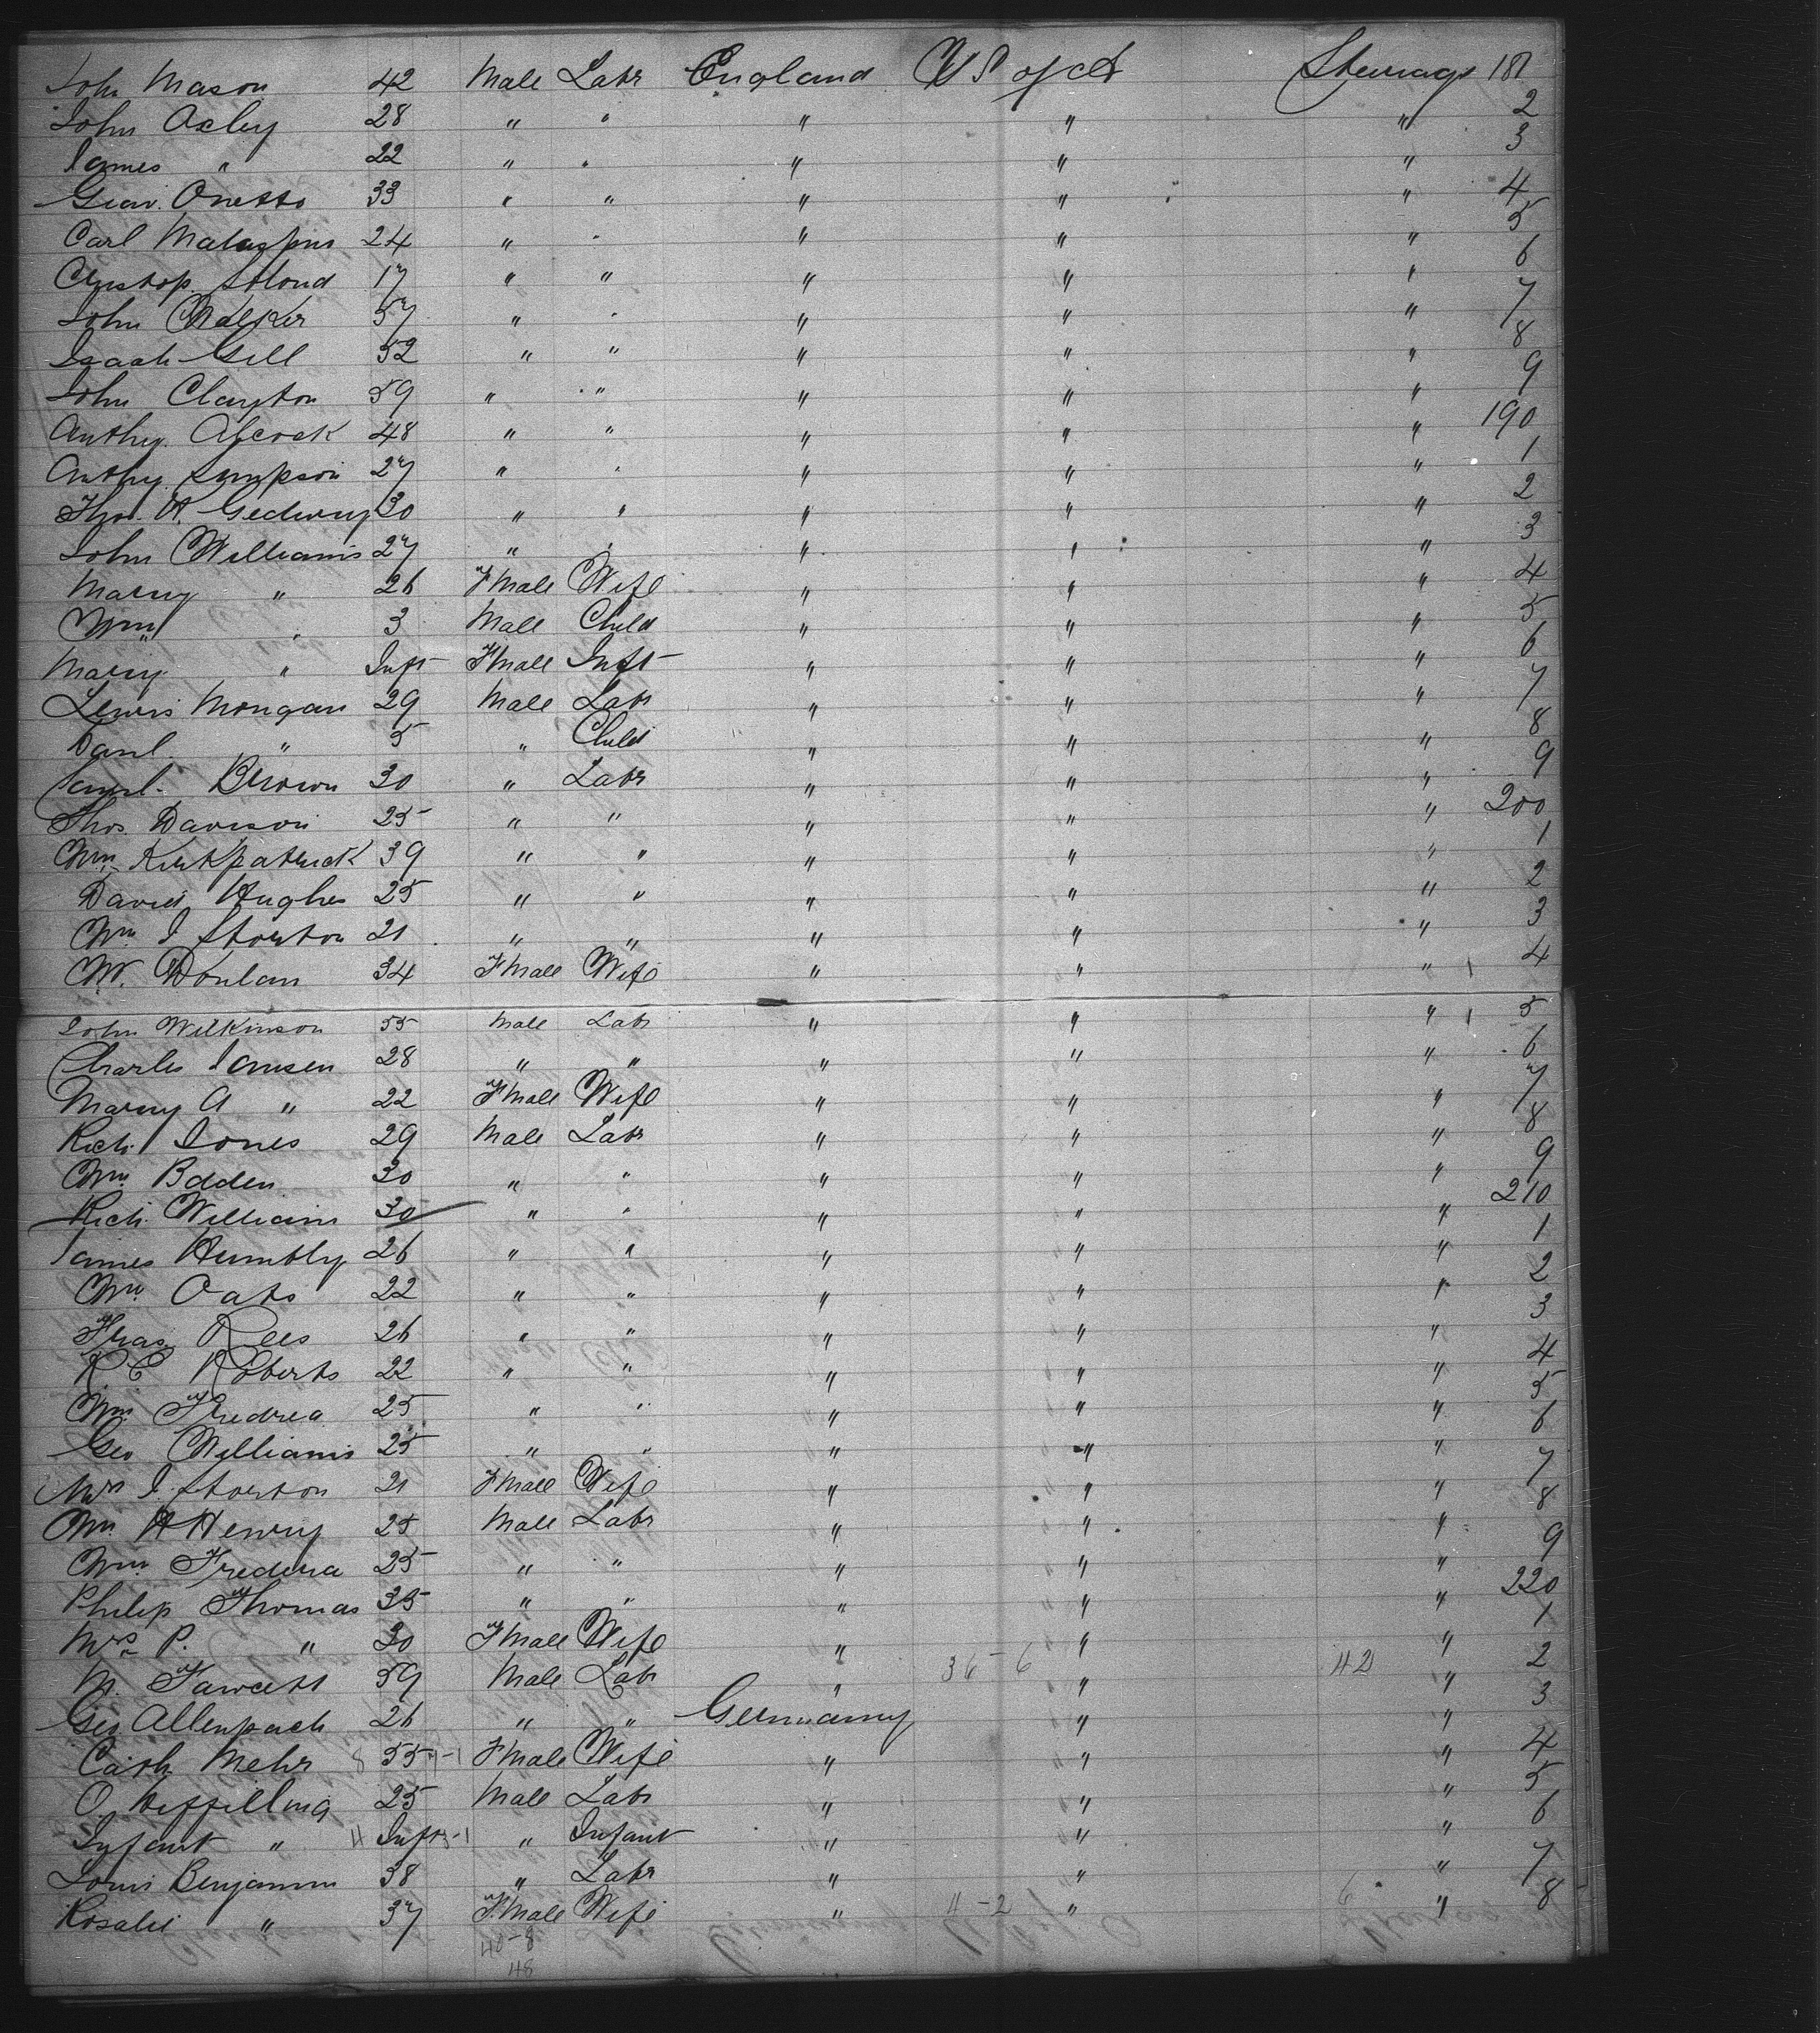 John Mason 42 Male Labr England U S of A Steerage 181
John Oxley 28 " " " " " 2
James " 22 " " " " " 3
Giov. Onetto 33 " " " " " 4
Carl 24 " " " " " 5
17 " " " " " 6
John Walker 57 " " " " " 7
Isaah Gill 52 " " " " " 8
John Clayton 59 " " " " " 9
Anthy. 48 " " " " " 190
Anthy. Simpson 27 " " " " " 1
Thos. H. 30 " " " " " 2
John Williams 27 " " " " " 3
Marry " 26 Fmale Wife " " " 4
Wm " 3 Male Child " " " 5
Marry " Inft Fmale Inft " " " 6
Lewis Mongan 29 Male Labr " " " 7
Danl. " 5 " Child " " " 8
Saml. Brown 30 " Labr " " " 9
Thos. Davison 25 " " " " " 200
Wm. Kirkpatrick 39 " " " " " 1
David Hughes 25 " " " " " 2
Wm J Storton 21 " " " " " 3
W. Doulan 34 Fmale Wife " " " 1 4
John Wilkinson 55 Male Labr " " " 1 5
Charles Jansen 28 " " " " " 6
Marry A " 22 Fmale Wife " " " 7
Rich. Jones 29 Male Labr " " " 8
Wm. Bdden 30 " " " " " 9
Rich. Williams 30 " " " " " 210
James Humbly 26 " " " " " 1
Wm Oats 22 " " " " " 2
Fras Rees 26 " " " " " 3
R. C Roberts 22 " " " " " 4
Wm Fredrea 25 " " " " " 5
Geo Williams 25 " " " " " 6
Mrs J. Storton 21 Fmale Wife " " " 7
Wm. H Henry 25 Male Labr " " " 8
Wm. 25 " " " " " 9
Philip Thomas 35 " " " " " 220
Mrs P. " 30 Fmale Wife " " " 1
M. Fawcett 59 Male Labr " 36-6 " 42 " 2
Geo Allenpach 26 " " Germany " " 3
Cath. Mehr 55 Fmale Wife " " " 4
O 25 Male Labr " " " 5
Infant " Inft " Infant " " " 6
Louis Benjamin 38 " Labr " " " 7
Rosalie " 37 Fmale Wife " 4-2 " 6 " 8
40-8
48